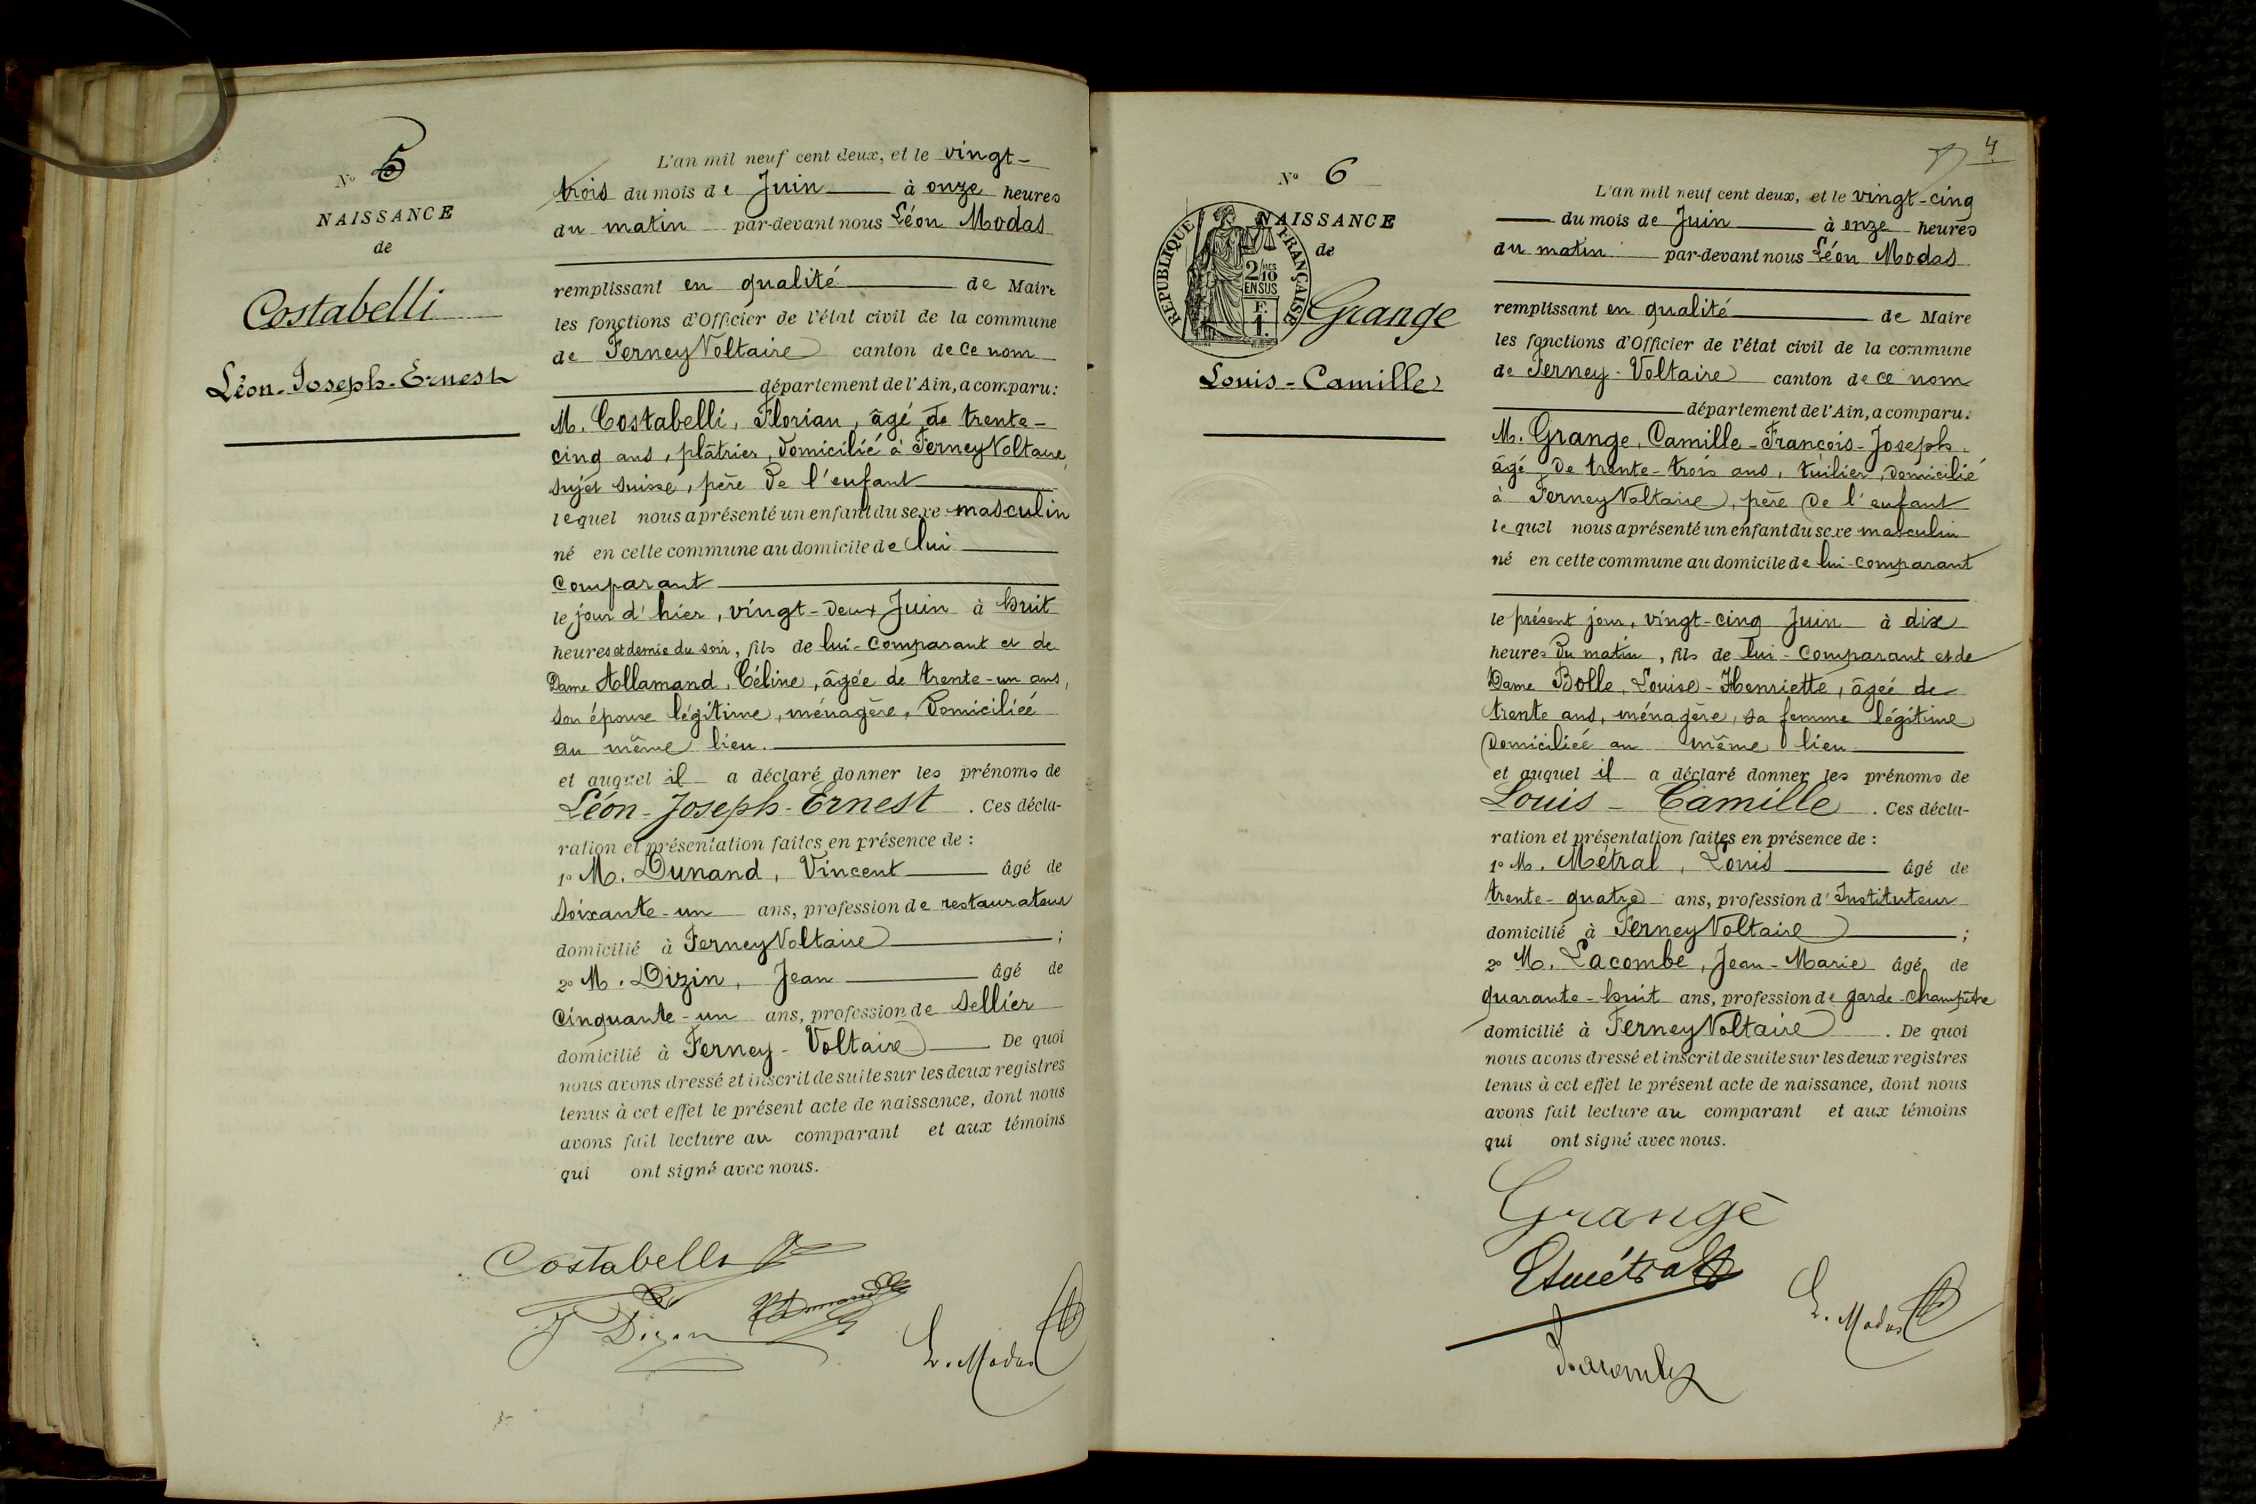 Nº 5
NAISSANCE
de
Costabelli
Léon-Joseph-Ernest
L'an mil neuf cent deux, et le vingt-
trois du mois de Juin à onze heures
du matin par-devant nous Léon Modas
remplissant en qualité de Maire
les fonctions d'Officier de l'état civil de la commune
de Ferney Voltaire canton de ce nom
département de l'Ain, a comparu:
M. Costabelli, Florian, âgé de trente-
cinq ans, plâtrier, domicilié à Ferney Voltaire,
sujet suisse, père de l'enfant
lequel nous a présenté un enfant du sexe masculin
né en cette commune au domicile de lui
comparant
le jour d'hier, vingt-deux Juin à huit
heures et demie du soir, fils de lui-comparant et de
Dame Allamand, Céline, âgée de trente-un ans,
son épouse légitime, ménagère, domiciliée
au même lieu.
et auquel il a déclaré donner les prénoms de
Léon-Joseph-Ernest. Ces décla-
ration et présentation faites en présence de :
1º M. Dunand, Vincent âgé de
soixante-un ans, profession de restaurateur
domicilié à Ferney Voltaire ;
2º M. Dizin, Jean âgé de
cinquante-un ans, profession de sellier
domicilié à Ferney-Voltaire De quoi
nous avons dressé et inscrit de suite sur les deux registres
tenus à cet effet le présent acte de naissance, dont nous
avons fait lecture au comparant et aux témoins
qui ont signé avec nous.
Costabelli
J Dizin
L. Modas
4
Nº 6
NAISSANCE
de
RÉPUBLIQUE FRANÇAISE
2/10 MES
EN SUS
F.
1.
Grange
Louis-Camille
L'an mil neuf cent deux, et le vingt-cinq
du mois de Juin à onze heures
du matin par-devant nous Léon Modas
remplissant en qualité de Maire
les fonctions d'Officier de l'état civil de la commune
de Ferney-Voltaire canton de ce nom
département de l'Ain, a comparu:
M. Grange, Camille-François-Joseph,
âgé de trente-trois ans, tuilier, domicilié
à Ferney Voltaire, père de l'enfant
lequel nous a présenté un enfant du sexe masculin
né en cette commune au domicile de lui-comparant
le présent jour, vingt-cinq Juin à dix
heures du matin, fils de lui-comparant et de
Dame Bolle, Louise-Henriette, âgée de
trente ans, ménagère, sa femme légitime
domiciliée au même lieu
et auquel il a déclaré donner les prénoms de
Louis-Camille. Ces décla-
ration et présentation faites en présence de :
1º M. Métral, Louis âgé de
trente-quatre ans, profession d'Instituteur
domicilié à Ferney Voltaire ;
2º M. Lacombe, Jean-Marie âgé de
quarante-huit ans, profession de garde-champêtre
domicilié à Ferney Voltaire. De quoi
nous avons dressé et inscrit de suite sur les deux registres
tenus à cet effet le présent acte de naissance, dont nous
avons fait lecture au comparant et aux témoins
qui ont signé avec nous.
Grange
L. Modas
Lacombe